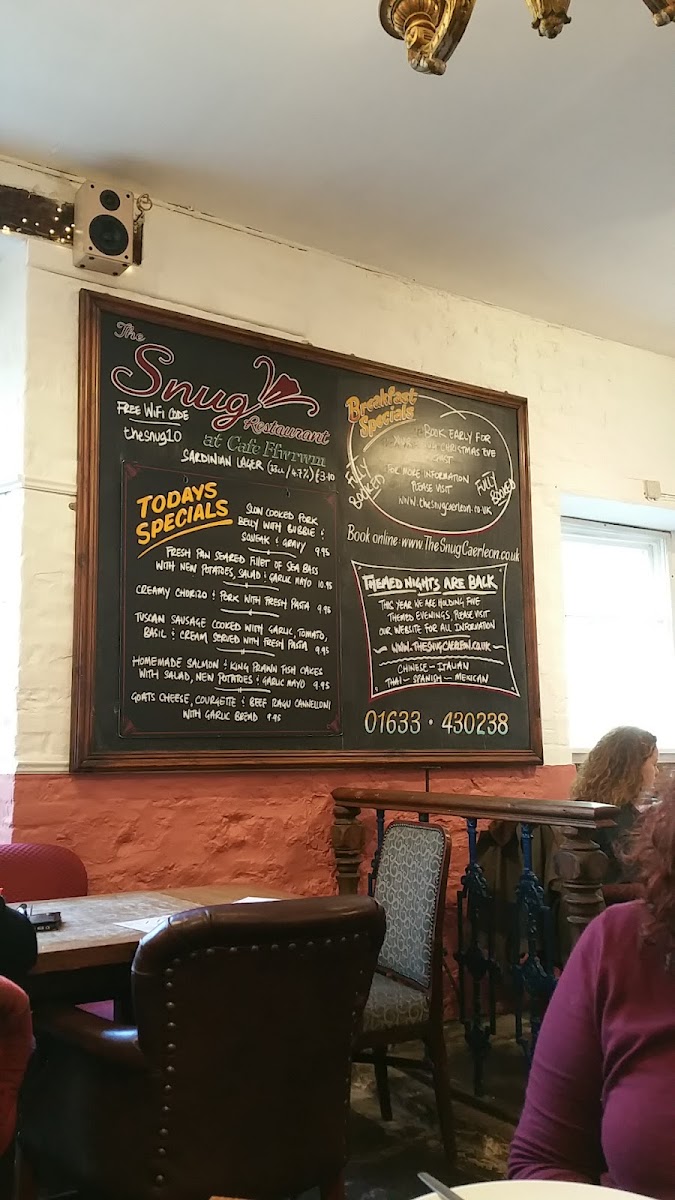 The
Snug
Restaurant
at Cafe Ffwrwm
FREE WIFI CODE
thesnug10
SARDINIAN LAGER (33CL / 4.7%) £3.40
TODAYS
SPECIALS
SLOW COOKED PORK
BELLY WITH BUBBLE &
SQUEAK & GRAVY 9.95
FRESH PAN SEARED FILLET OF SEA BASS
WITH NEW POTATOES, SALAD & GARLIC MAYO 10.95
CREAMY CHORIZO & PORK WITH FRESH PASTA 9.95
TUSCAN SAUSAGE COOKED WITH GARLIC, TOMATO,
BASIL & CREAM SERVED WITH FRESH PASTA 9.95
HOMEMADE SALMON & KING PRAWN FISH CAKES
WITH SALAD, NEW POTATOES & GARLIC MAYO 9.95
GOATS CHEESE, COURGETTE & BEEF RAGU CANNELLONI
WITH GARLIC BREAD 9.95
Breakfast
Specials
BOOK EARLY FOR
CHRISTMAS EVE
FOR MORE INFORMATION
PLEASE VISIT
WWW.thesnugcaerleon.co.uk
FULLY
BOOKED
FULLY
BOOKED
Book online · www.TheSnugCaerleon.co.uk
THEMED NIGHTS ARE BACK
THIS YEAR WE ARE HOLDING FIVE
THEMED EVENINGS, PLEASE VISIT
OUR WEBSITE FOR ALL INFORMATION
WWW.THESNUGCAERLEON.CO.UK
CHINESE – ITALIAN
THAI – SPANISH – MEXICAN
01633 · 430238